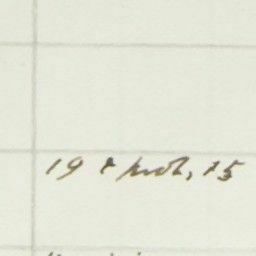 19 & prob. 15